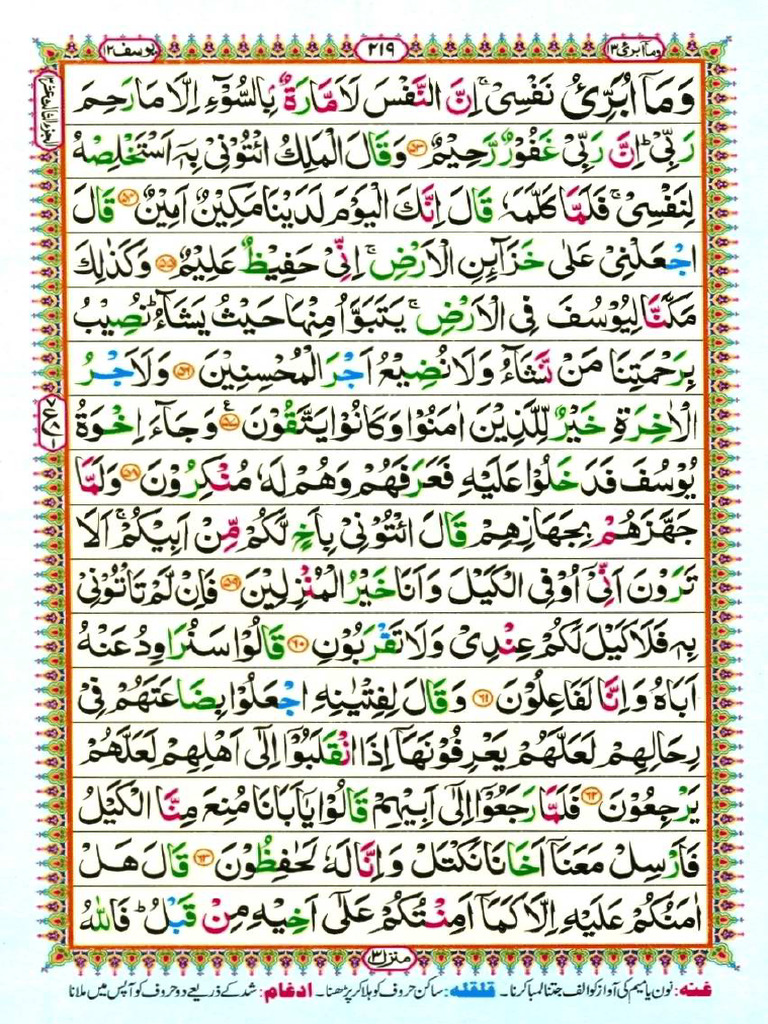 وما ابرئ ١٣
٢١٩
يوسف ١٢
وَمَاۤ اُبَرِّئُ نَفْسِیْ ۚ اِنَّ النَّفْسَ لَاَمَّارَةٌۢ بِالسُّوْٓءِ اِلَّا مَا رَحِمَ
رَبِّیْ ؕ اِنَّ رَبِّیْ غَفُوْرٌ رَّحِیْمٌ ۝۵۳ وَقَالَ الْمَلِكُ ائْتُوْنِیْ بِهٖۤ اَسْتَخْلِصْهُ
لِنَفْسِیْ ۚ فَلَمَّا كَلَّمَهٗ قَالَ اِنَّكَ الْیَوْمَ لَدَیْنَا مَكِیْنٌ اَمِیْنٌ ۝۵۴ قَالَ
اجْعَلْنِیْ عَلٰی خَزَآئِنِ الْاَرْضِ ۚ اِنِّیْ حَفِیْظٌ عَلِیْمٌ ۝۵۵ وَكَذٰلِكَ
مَكَّنَّا لِیُوْسُفَ فِی الْاَرْضِ ۚ یَتَبَوَّاُ مِنْهَا حَیْثُ یَشَآءُ ؕ نُصِیْبُ
بِرَحْمَتِنَا مَنْ نَّشَآءُ وَلَا نُضِیْعُ اَجْرَ الْمُحْسِنِیْنَ ۝۵۶ وَلَاَجْرُ
الْاٰخِرَةِ خَیْرٌ لِّلَّذِیْنَ اٰمَنُوْا وَكَانُوْا یَتَّقُوْنَ ۝۵۷ وَجَآءَ اِخْوَةُ
یُوْسُفَ فَدَخَلُوْا عَلَیْهِ فَعَرَفَهُمْ وَهُمْ لَهٗ مُنْكِرُوْنَ ۝۵۸ وَلَمَّا
جَهَّزَهُمْ بِجَهَازِهِمْ قَالَ ائْتُوْنِیْ بِاَخٍ لَّكُمْ مِّنْ اَبِیْكُمْ ۚ اَلَا
تَرَوْنَ اَنِّیْۤ اُوْفِی الْكَیْلَ وَاَنَا خَیْرُ الْمُنْزِلِیْنَ ۝۵۹ فَاِنْ لَّمْ تَاْتُوْنِیْ
بِهٖ فَلَا كَیْلَ لَكُمْ عِنْدِیْ وَلَا تَقْرَبُوْنِ ۝۶۰ قَالُوْا سَنُرَاوِدُ عَنْهُ
اَبَاهُ وَاِنَّا لَفَاعِلُوْنَ ۝۶۱ وَقَالَ لِفِتْیٰنِهِ اجْعَلُوْا بِضَاعَتَهُمْ فِیْ
رِحَالِهِمْ لَعَلَّهُمْ یَعْرِفُوْنَهَاۤ اِذَا انْقَلَبُوْۤا اِلٰۤی اَهْلِهِمْ لَعَلَّهُمْ
یَرْجِعُوْنَ ۝۶۲ فَلَمَّا رَجَعُوْۤا اِلٰۤی اَبِیْهِمْ قَالُوْا یٰۤاَبَانَا مُنِعَ مِنَّا الْكَیْلُ
فَاَرْسِلْ مَعَنَاۤ اَخَانَا نَكْتَلْ وَاِنَّا لَهٗ لَحٰفِظُوْنَ ۝۶۳ قَالَ هَلْ
اٰمَنُكُمْ عَلَیْهِ اِلَّا كَمَاۤ اَمِنْتُكُمْ عَلٰۤی اَخِیْهِ مِنْ قَبْلُ ؕ فَاللّٰهُ
منزل ٣
غنه: نون یا میم کی آواز کو الف جتنا لمبا کرنا۔ قلقله: ساکن حروف کو ہلا کر پڑھنا۔ ادغام: شد کے ذریعے دو حروف کو آپس میں ملانا